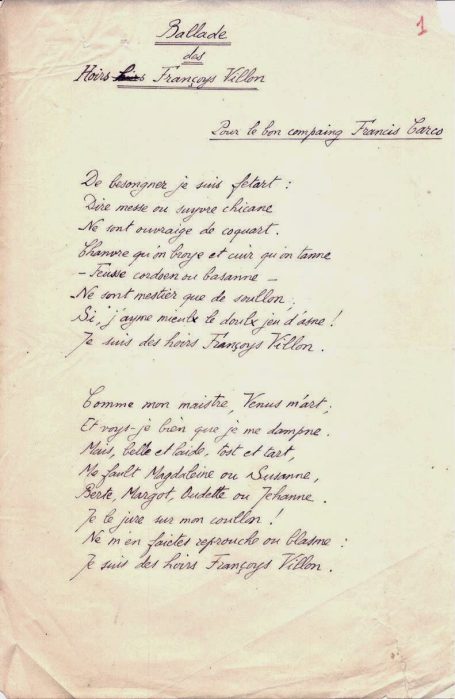 1
Ballade
des
Hoirs Françoys Villon
Pour le bon compaing Francis Carco
De besongner je suis fetart :
Dire messe ou suyvre chicane
Ne sont ouvraige de coquart.
Chanvre qu'on broye et cuir qu'on tanne
- Feusse cordoen ou basanne -
Ne sont mestier que de soullon ;
Si, j'ayme mieulx le doulx jeu d'asne !
Je suis des hoirs Françoys Villon .
Comme mon maistre, Venus m'art ;
Et voys-je bien que je me dampne .
Mais, belle et laide, tost et tart,
Me fault Magdaleine ou Susanne,
Berte, Margot, Oudette ou Jehanne .
Je le jure sur mon coullon !
Ne m'en faictes reprouche ou blasme :
Je suis des hoirs Françoys Villon .